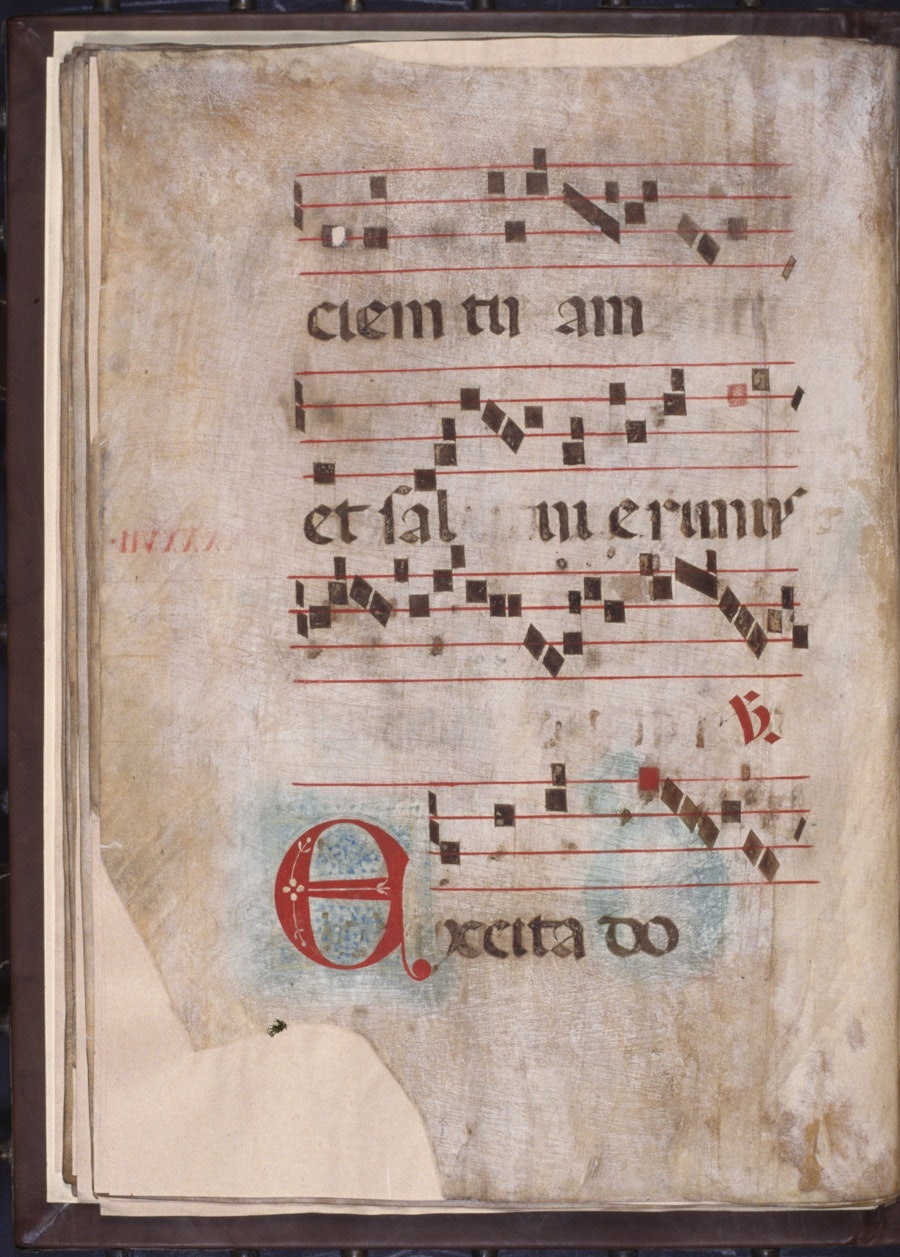 ciem tu am
et sal ui erimus
℣.
Excita do